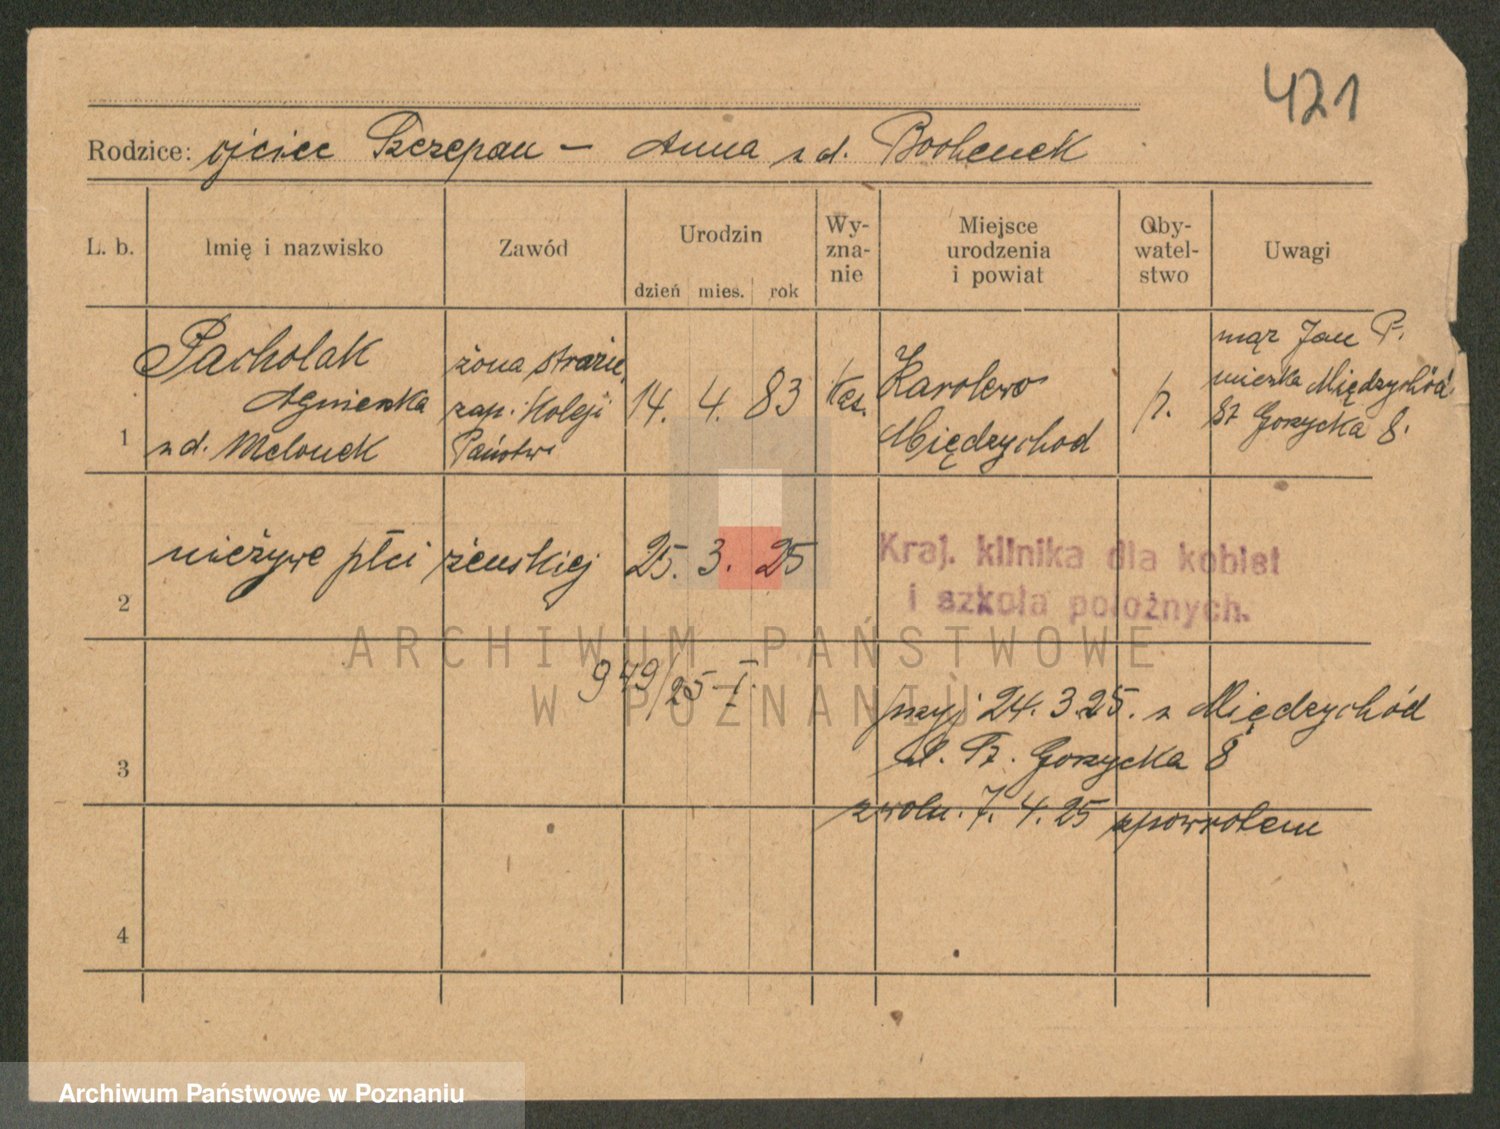 421
Rodzice: ojciec Szczepan – Anna z d. Bochenek
L. b.
Imię i nazwisko
Zawód
Urodzin
dzień mies. rok
Wy-
zna-
nie
Miejsce
urodzenia
i powiat
Oby-
watel-
stwo
Uwagi
1
Pacholak
Agnieszka
z d. Melonek
żona strażn.
zap. Koleji
Państw.
14. 4. 83
Karolewo
Międzychod
p.
mąż Jan P.
mieszka Międzychód
Gorzycka 8.
2
nieżywe płci żeńskiej
25. 3. 25
Kraj. klinika dla kobiet
i szkoła położnych.
3
949/25-I.
przyj 24. 3. 25. z Międzychód
Gorzycka 8
zwoln. 7. 4. 25 spowrotem
4
ARCHIWUM PAŃSTWOWE
W POZNANIU
Archiwum Państwowe w Poznaniu